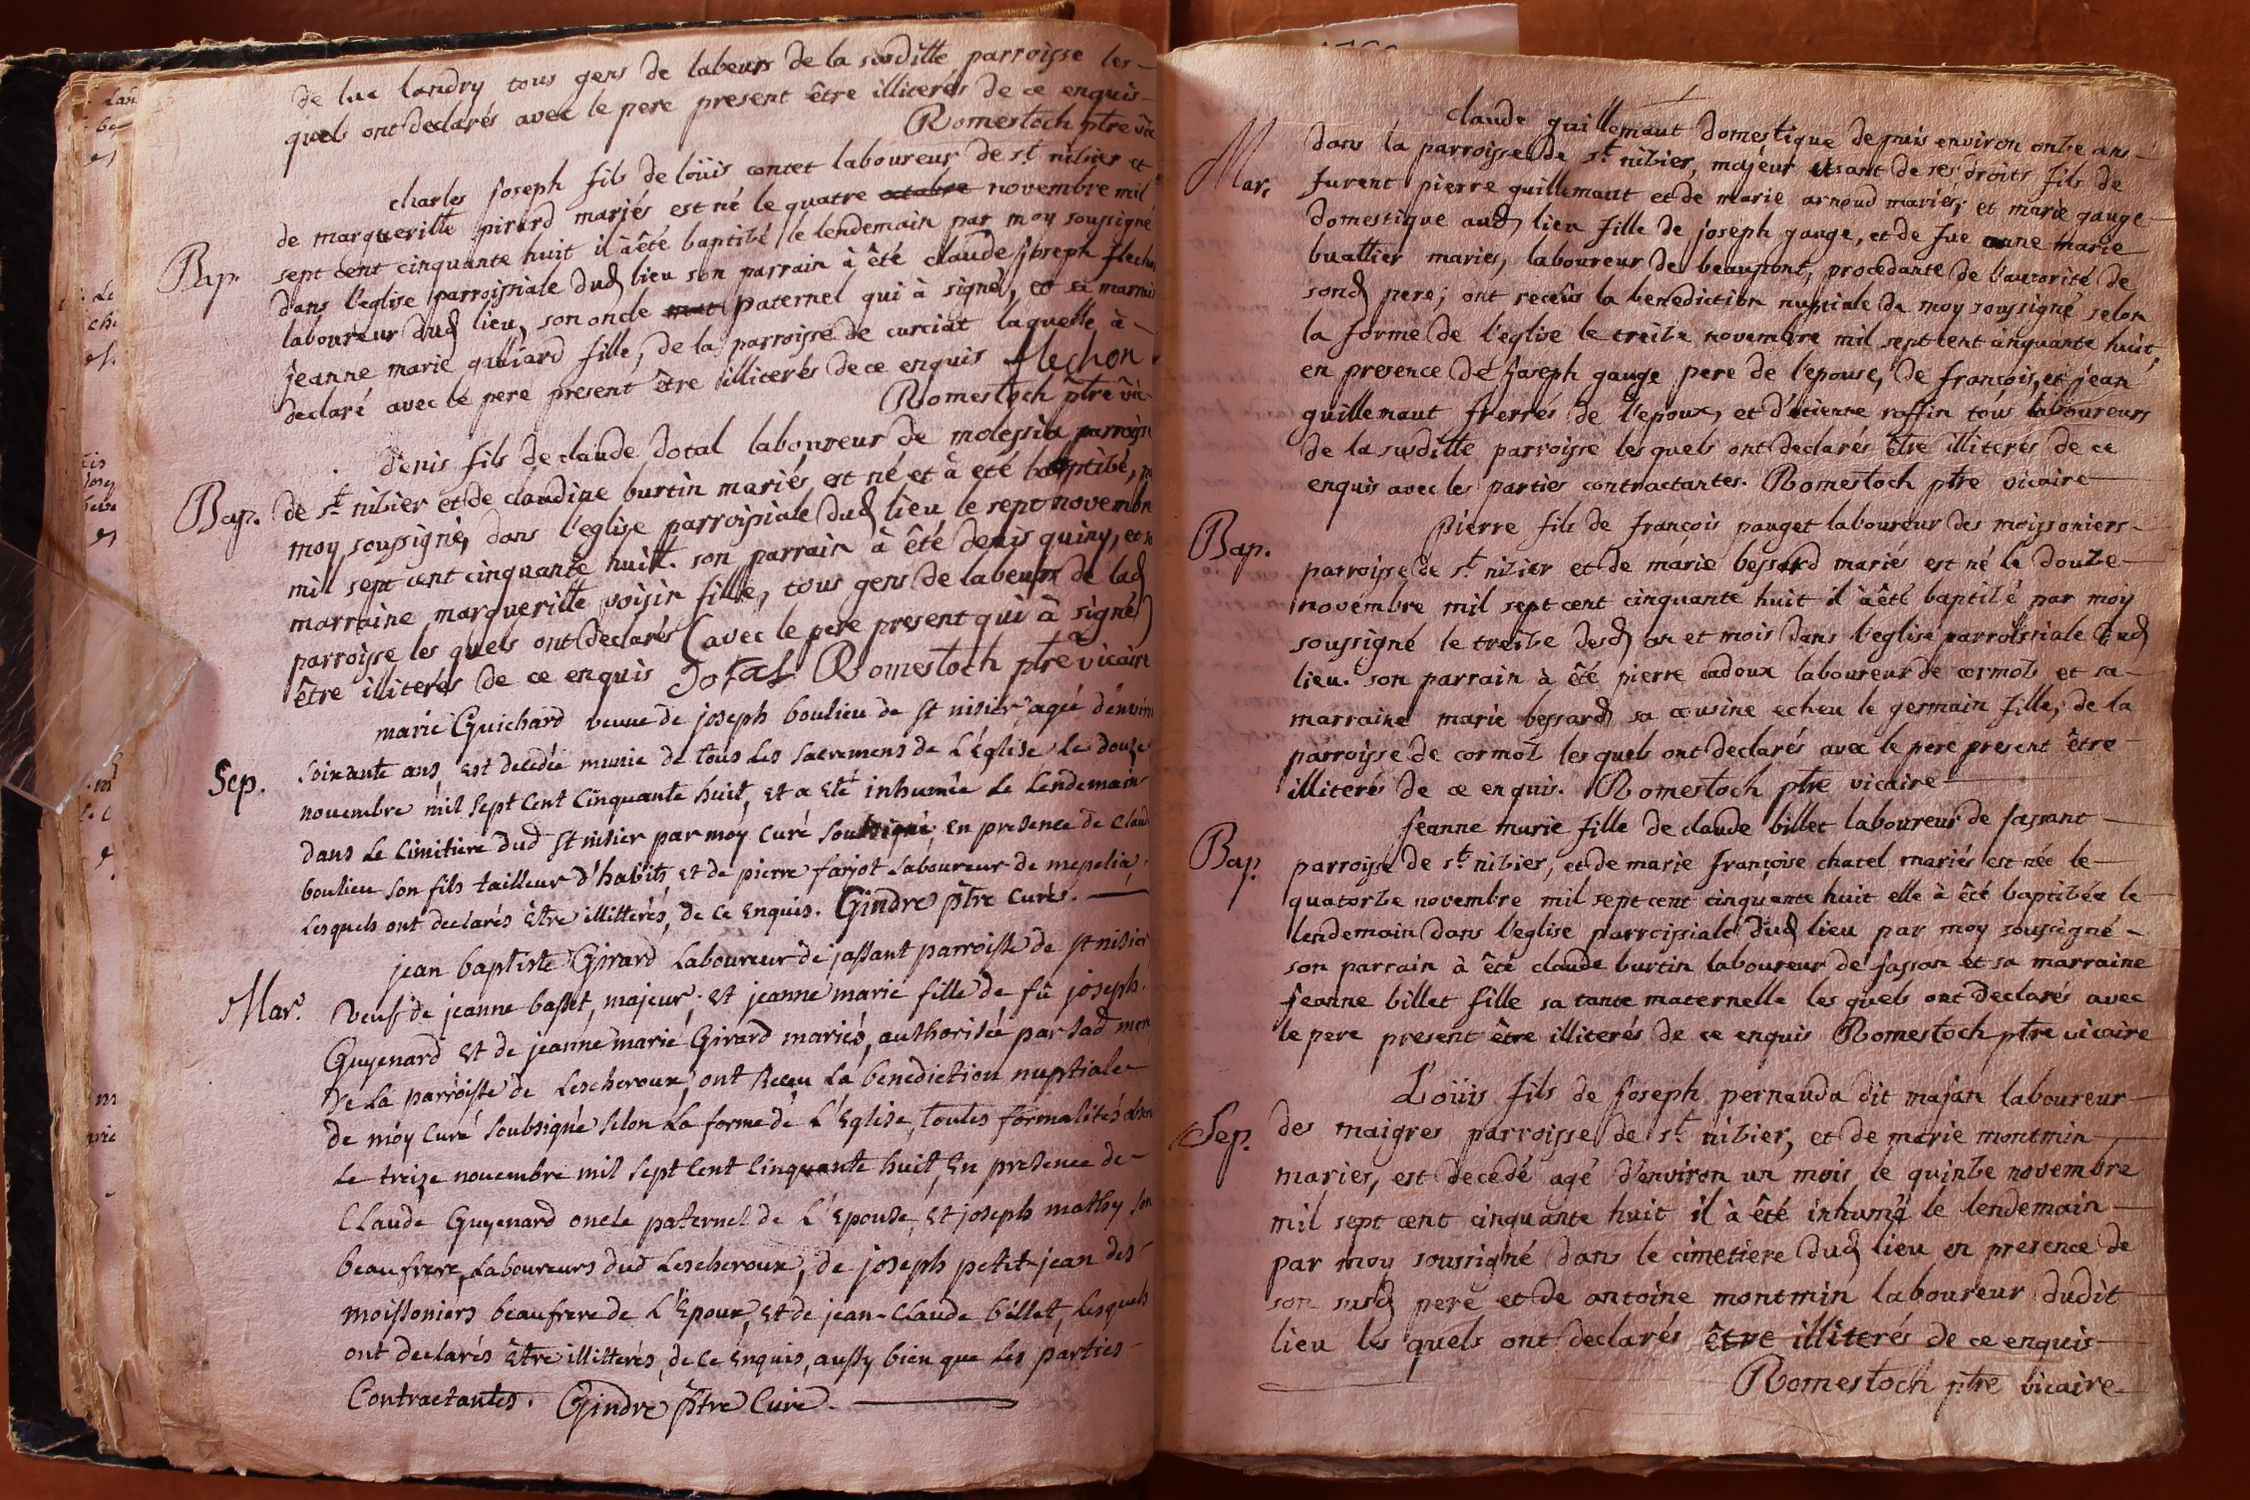 de luc landry tous gens de labeurs de la susditte parroisse les-
quels ont declarés avec le pere present être illiterés de ce enquis
Romestoch ptre
charles joseph fils de loüis contet laboureur de st nibier et
de marguerille pirard mariés est né le quatre octobre novembre mil
Bap. sept cent cinquante huit il à êté baptibé le lendemain par moy soussigné
dans l'eglise parroissiale dud lieu son parrain à êté claude joseph
laboureur dud lieu, son oncle paternel qui à signé, et sa
jeanne marie gulliard fille, de la parroisse de curciat laquelle à
declaré avec le pere present être illiterés de ce enquis flechon
Romestoch ptre
denis fils de claude dotal laboureur de molessia parroisse
Bap. de st nibier et de claudine burtin mariés est né et à eté baptibé,
moy soussigné, dans l'eglise parroissiale dud lieu le sept novembre
mil sept cent cinquante huit. son parrain à êté denis quiny, et
marraine marguerille voisin fille, tous gens de labeur de lad
parroisse les quels ont declarés (avec le pere present qui à signé)
être illiterés de ce enquis Dotal Romestoch ptre vicaire
marie Guichard veuve de joseph boulieu de st nisier agée d'environ
Sep. soixante ans, est decedée munie de tous les sacremens de L'Eglise le douze
novembre mil sept cent cinquante huit, et a eté inhumée le Lendemain
dans le Cimitiere dud st nisier par moy Curé soubsigné, en presence de Claud
boulieu son fils tailleur d'habits et de pierre farjot Laboureur de mepelia,
Lesquels ont declarés être illitterés, de ce Enquis. Gindre ptre Curés.
jean baptiste Girard Laboureur de jassant parroisse de st nisier
Mar. veuf de jeanne basset, majeur; et jeanne marie fille de fû joseph
Guyenard et de jeanne marie Girard mariés, authorisée par sad mere
de la parroisse de Lescheroux, ont Receu La benediction nuptiale
de moy Curé soubsigné selon La forme de L'Eglise, toutes formalités
Le treize novembre mil sept Cent Cinquante huit, En presence de
Claude Guyenard oncle paternel de L'Epouse, et joseph mathy son
beaufrere, Laboureurs dud Lescheroux, de joseph petit-jean des
moissoniers beaufrere de L'Epoux, et de jean-Claude billet, Lesquels
ont declarés Etre illitterés, de Ce Enquis, aussy bien que Les parties
Contractantes. Gindre ptre Curé.
claude guillemaut domestique depuis environ onbe ans
Mar. dans la parroisse de st nibier, majeur usant de ses droits fils de
furent pierre guillemaut et de marie arnoud mariés; et marie gauge
domestique aud lieu fille de joseph gauge, et de fue anne marie
buattier mariés, laboureur de beaupont, procedante de l'autorité de
sond pere; ont recëus la benediction nuptiale de moy soussigné selon
la forme de l'eglise le treibe novembre mil sept cent cinquante huit,
en presence de joseph gauge pere de l'epouse, de françois, et jean
guillemaut frerrés de l'epoux, et d'etienne raffin tous laboureurs
de la susditte parroisse les quels ont declarés être illiterés de ce
enquis avec les parties contractantes. Romestoch ptre vicaire
pierre fils de françois pauget laboureur des moissoniers
Bap. parroisse de st nibier et de marie bessard mariés est né le doube
novembre mil sept cent cinquante huit il à êté baptibé par moy
soussigné le treibe desd an et mois dans l'eglise parroissiale dud
lieu. son parrain à êté pierre cadoux laboureur de cormob et sa
marraine marie bessard sa cousine echeu le germain fille, de la
parroisse de cormob les quels ont declarés avec le pere present être
illiterés de ce enquis. Romestoch ptre vicaire
jeanne marie fille de claude billet laboureur de jassant
Bap. parroisse de st nibier, et de marie françoise chatel mariés est née le
quatorbe novembre mil sept cent cinquante huit elle à êté baptibée le
lendemain dans l'eglise parroissiale dud lieu par moy soussigné
son parrain à êté claude burtin laboureur de jassan et sa marraine
jeanne billet fille sa tante maternelle les quels ont declarés avec
le pere present être illiterés de ce enquis Romestoch ptre vicaire
Loüis fils de joseph pernauda dit majan laboureur
Sep. des maigres parroisse de st nibier, et de marie montmin
mariés, est decedé agé d'environ un mois le quinbe novembre
mil sept cent cinquante huit il à êté inhumé le lendemain
par moy soussigné dans le cimetiere dud lieu en presence de
son susd peré et de antoine montmin laboureur dudit
lieu les quels ont declarés être illiterés de ce enquis
Romestoch ptre vicaire